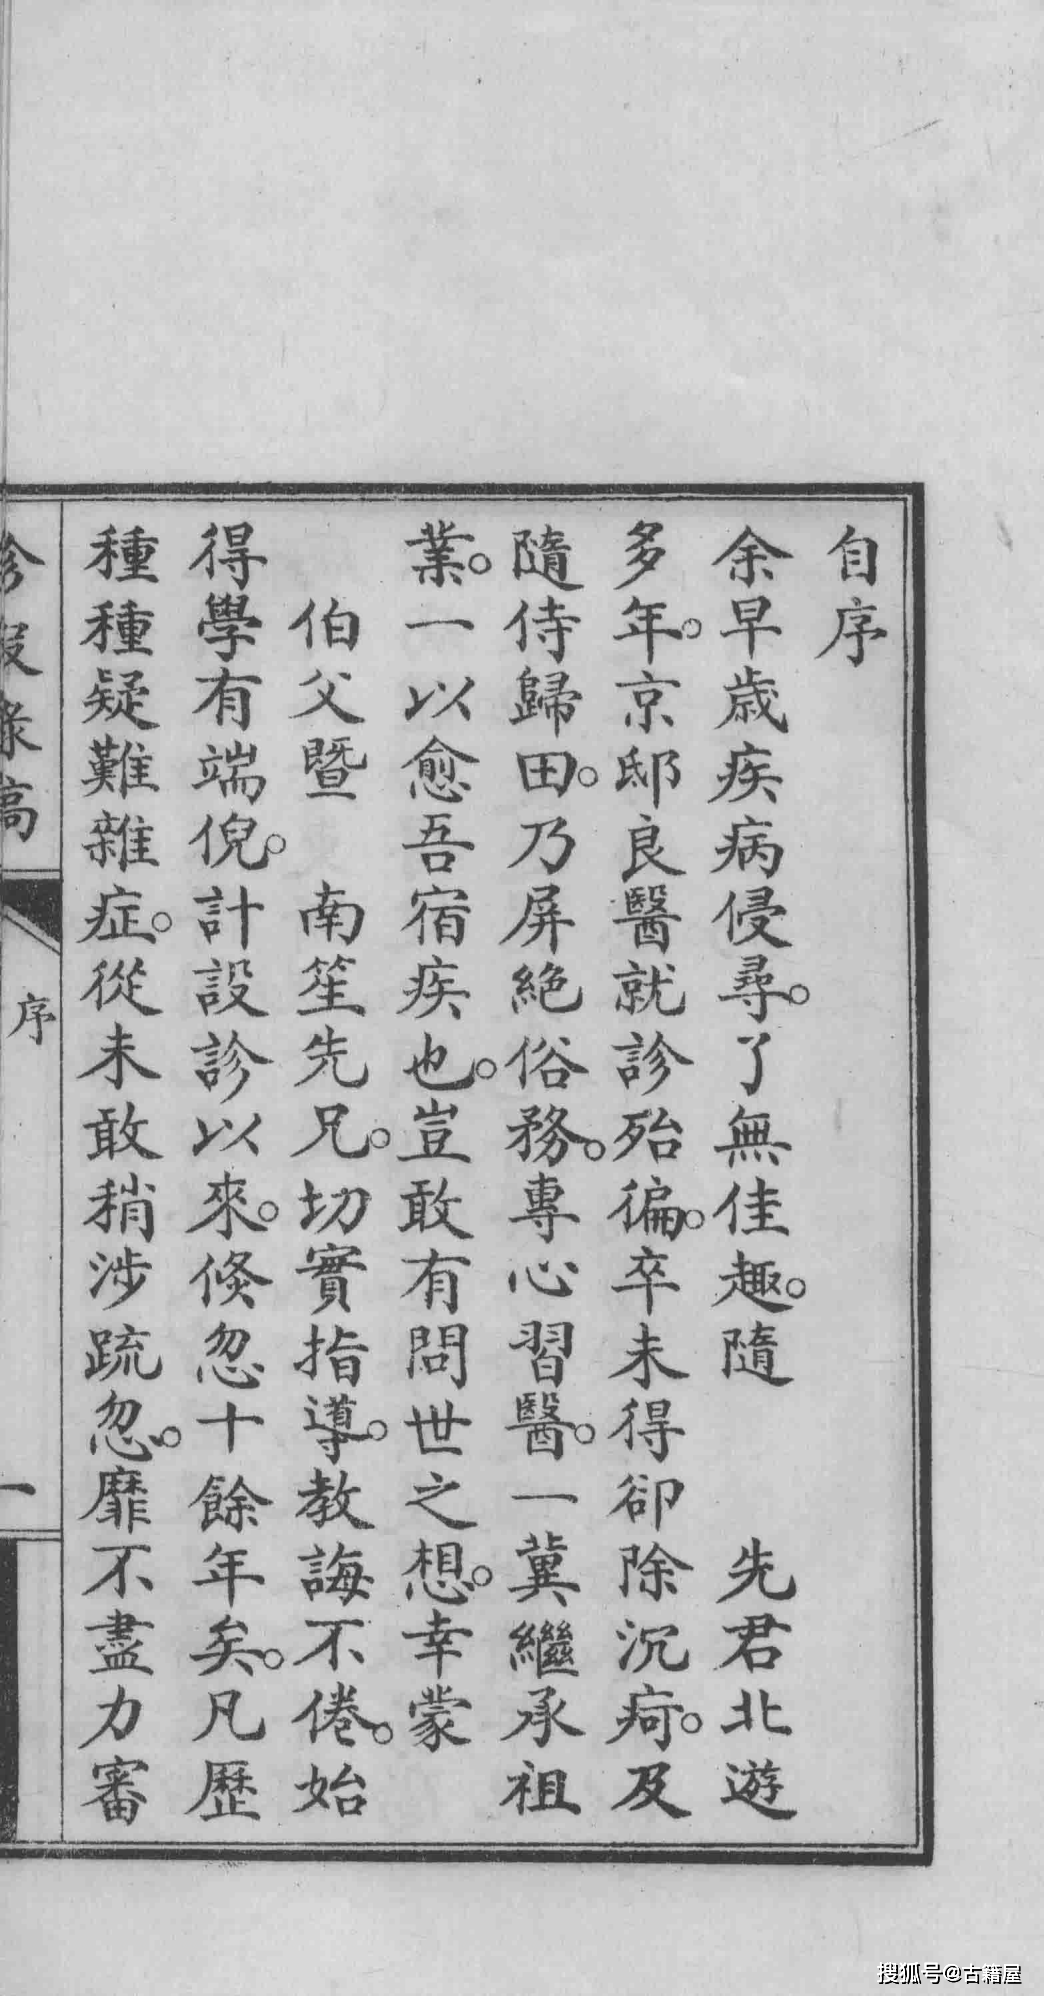 自序
余早歲疾病侵尋。了無佳趣。隨　　先君北遊
多年。京邸良醫就診殆徧。卒未得卻除沉疴。及
隨侍歸田。乃屏絕俗務。專心習醫。一冀繼承祖
業。一以愈吾宿疾也。豈敢有問世之想。幸蒙
　伯父暨　南笙先兄。切實指導。教誨不倦。始
得學有端倪。計設診以來。倏忽十餘年矣。凡歷
種種疑難雜症。從未敢稍涉疏忽。靡不盡力審
序
一
搜狐号@古籍屋